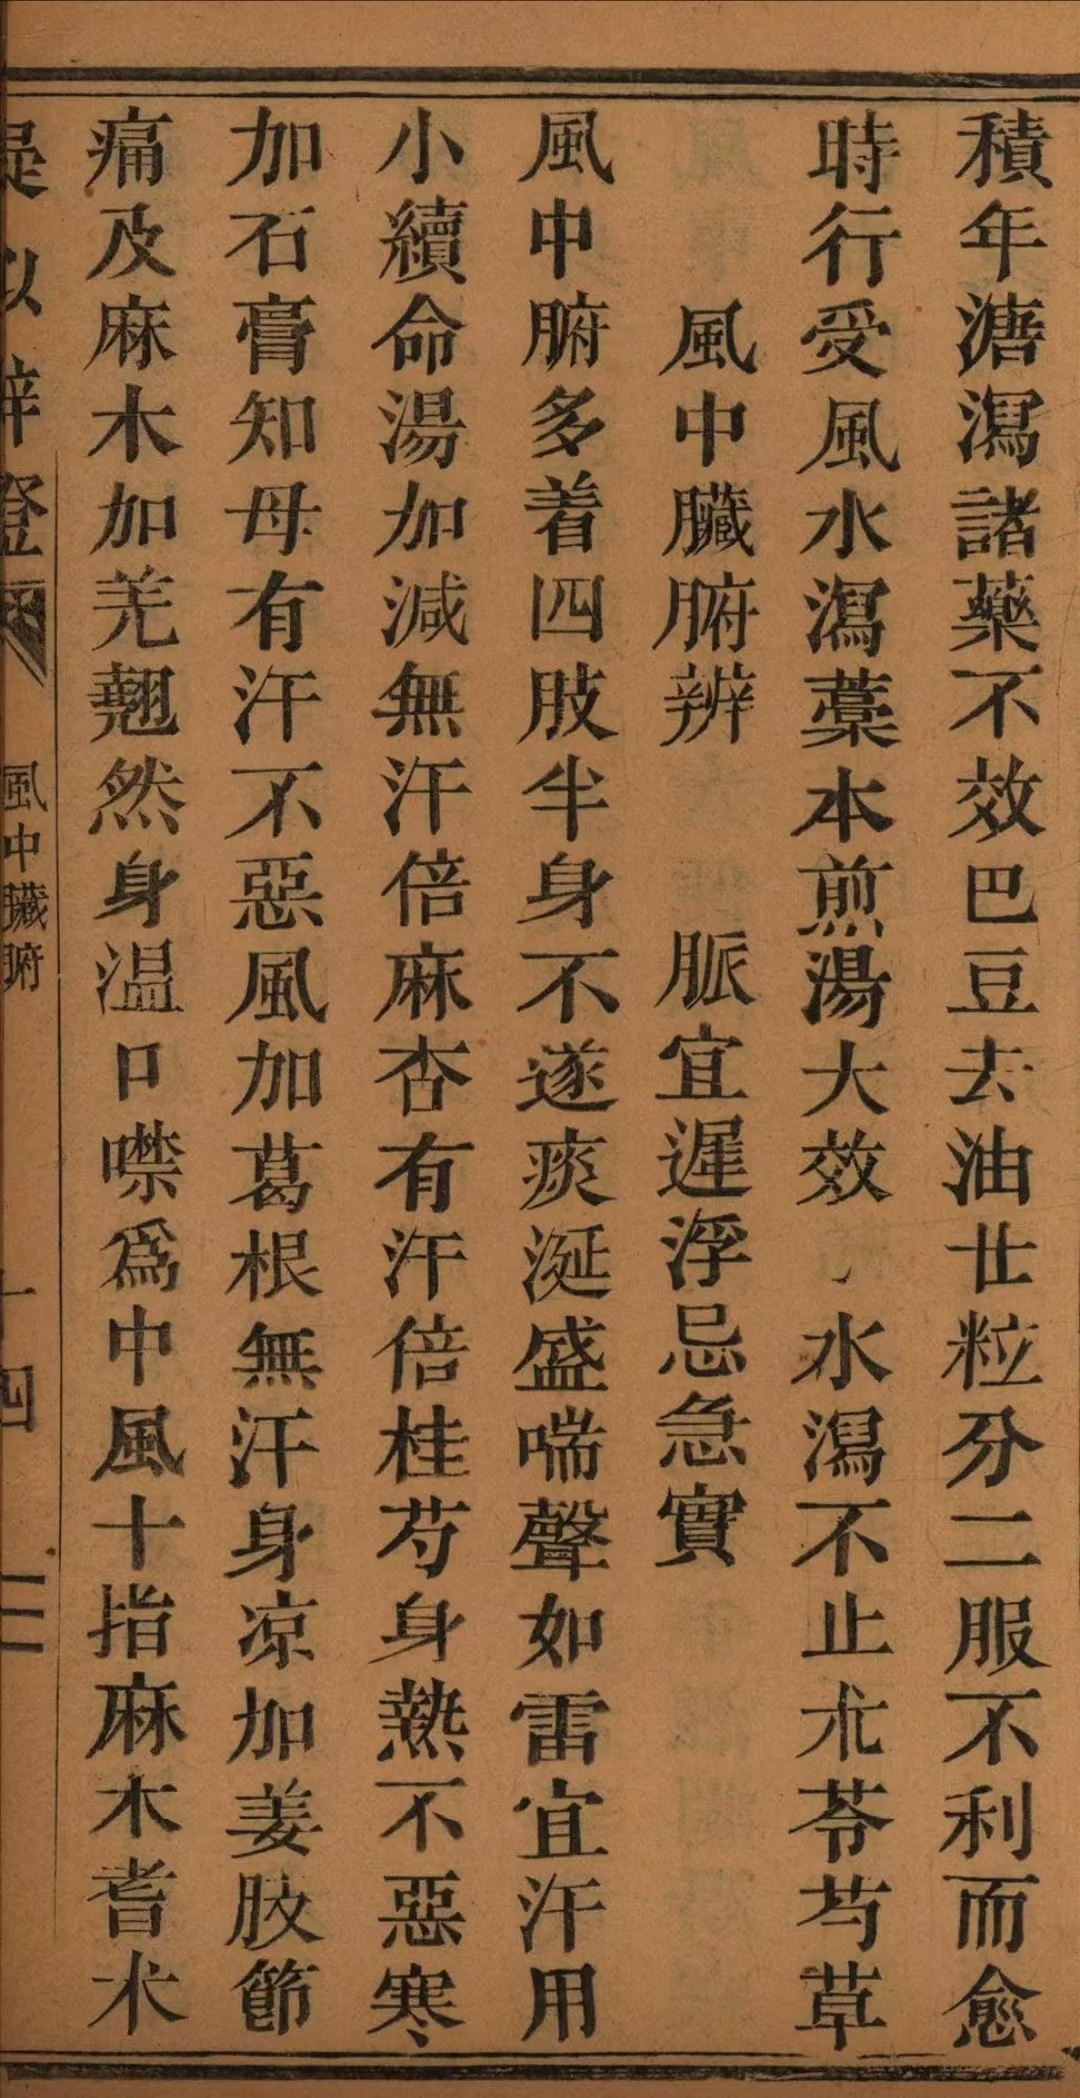 積年溏瀉諸藥不效巴豆去油廿粒分二服不利而愈
時行受風水瀉藁本煎湯大效 水瀉不止朮苓芍草
風中臟腑辨 脈宜遲浮忌急實
風中腑多着四肢半身不遂痰涎盛喘聲如雷宜汗用
小續命湯加減無汗倍麻杏有汗倍桂芍身熱不惡寒
加石膏知母有汗不惡風加葛根無汗身凉加姜肢節
痛及麻木加羌翹然身温口噤爲中風十指麻木耆朮
疑似辨證 風中臟腑 十四